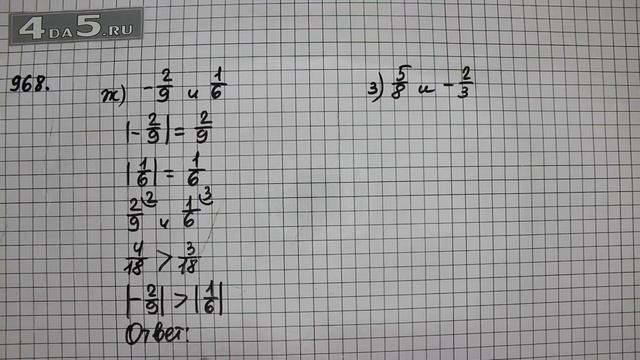 4DA5.RU
968.
ж) -2/9 и 1/6
|-2/9| = 2/9
|1/6| = 1/6
2/9 ² и 1/6 ³
4/18 > 3/18
|-2/9| > |1/6|
Ответ:
з) 5/8 и -2/3